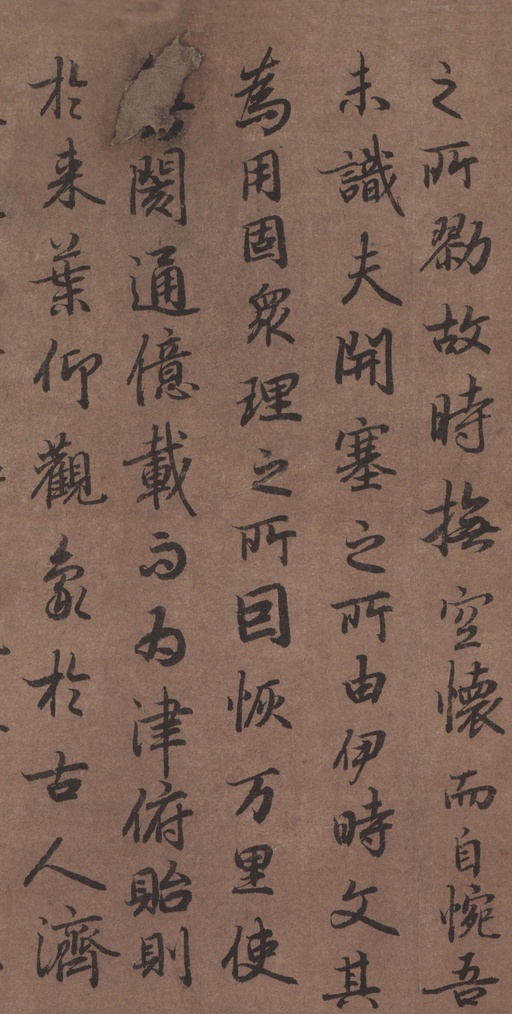 之所勠故時撫空懷而自惋吾
未識夫開塞之所由伊時文其
為用固衆理之所因恢万里使
閡通億載而為津俯貽則
於来葉仰觀象於古人濟